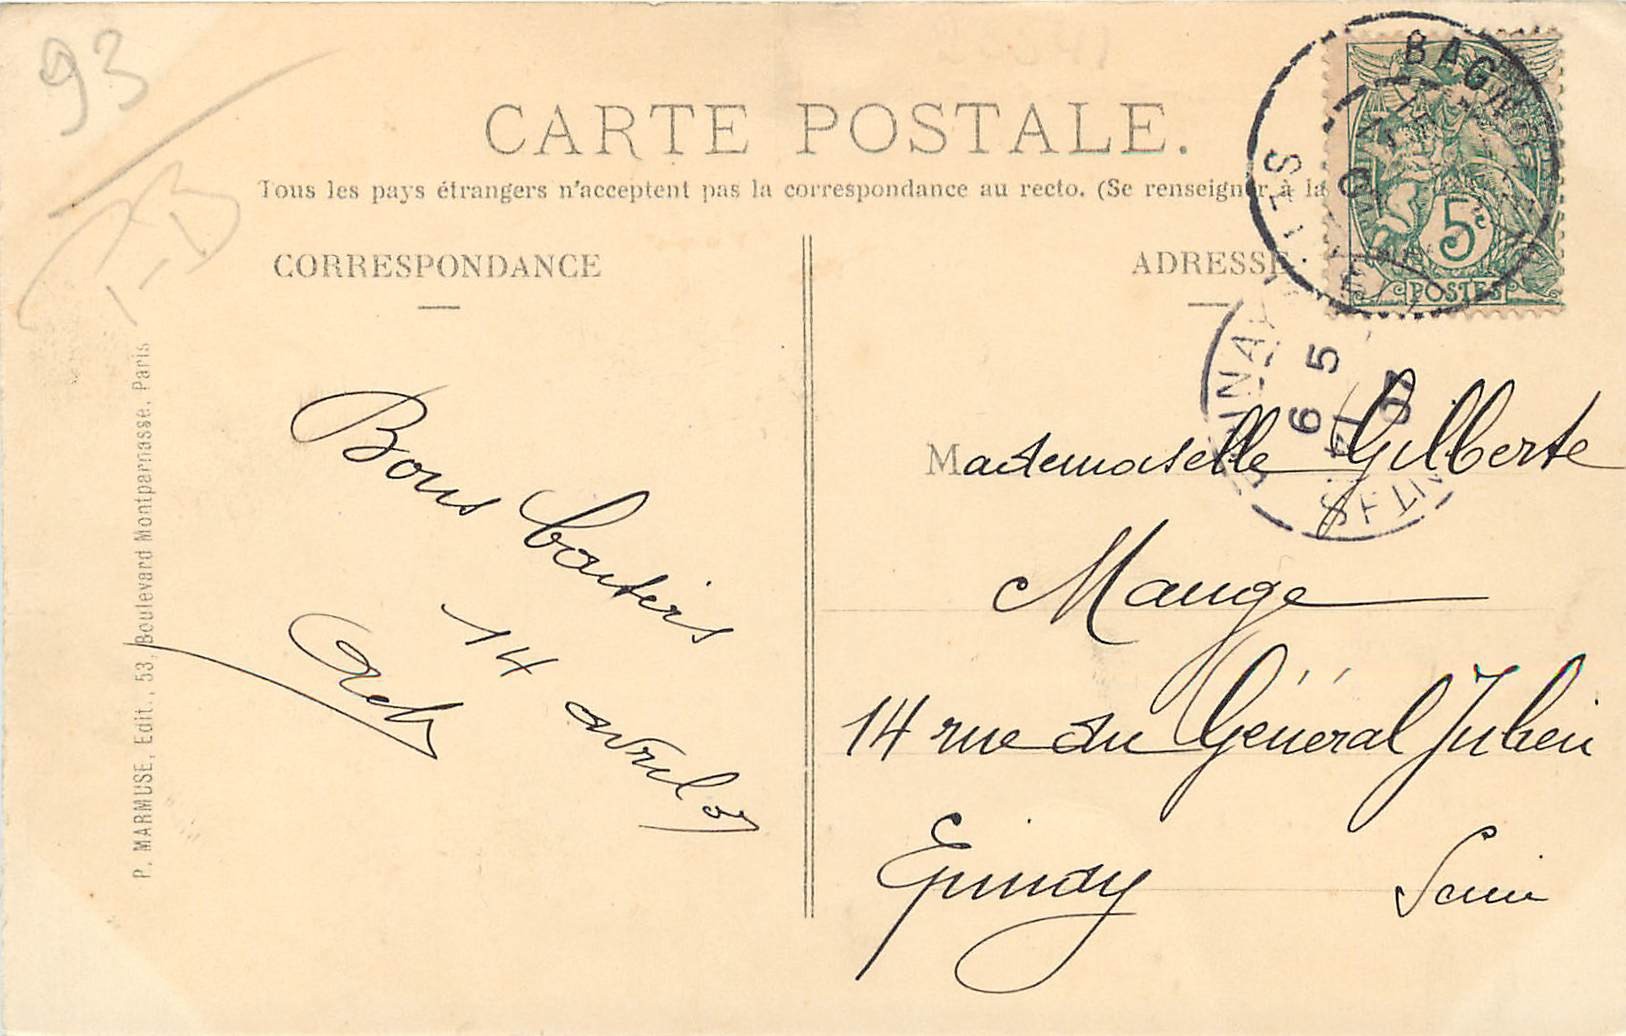 93
CARTE POSTALE.
Tous les pays étrangers n'acceptent pas la correspondance au recto. (Se renseigner à la
CORRESPONDANCE
ADRESSE
5c
POSTES
6 5
07
SEINE
Bons baisers
14 avril 07
Mademoiselle Gilberte
Mauge
14 rue du Général Julien
Epinay Seine
P. MARMUSE, Edit., 53, Boulevard Montparnasse, Paris